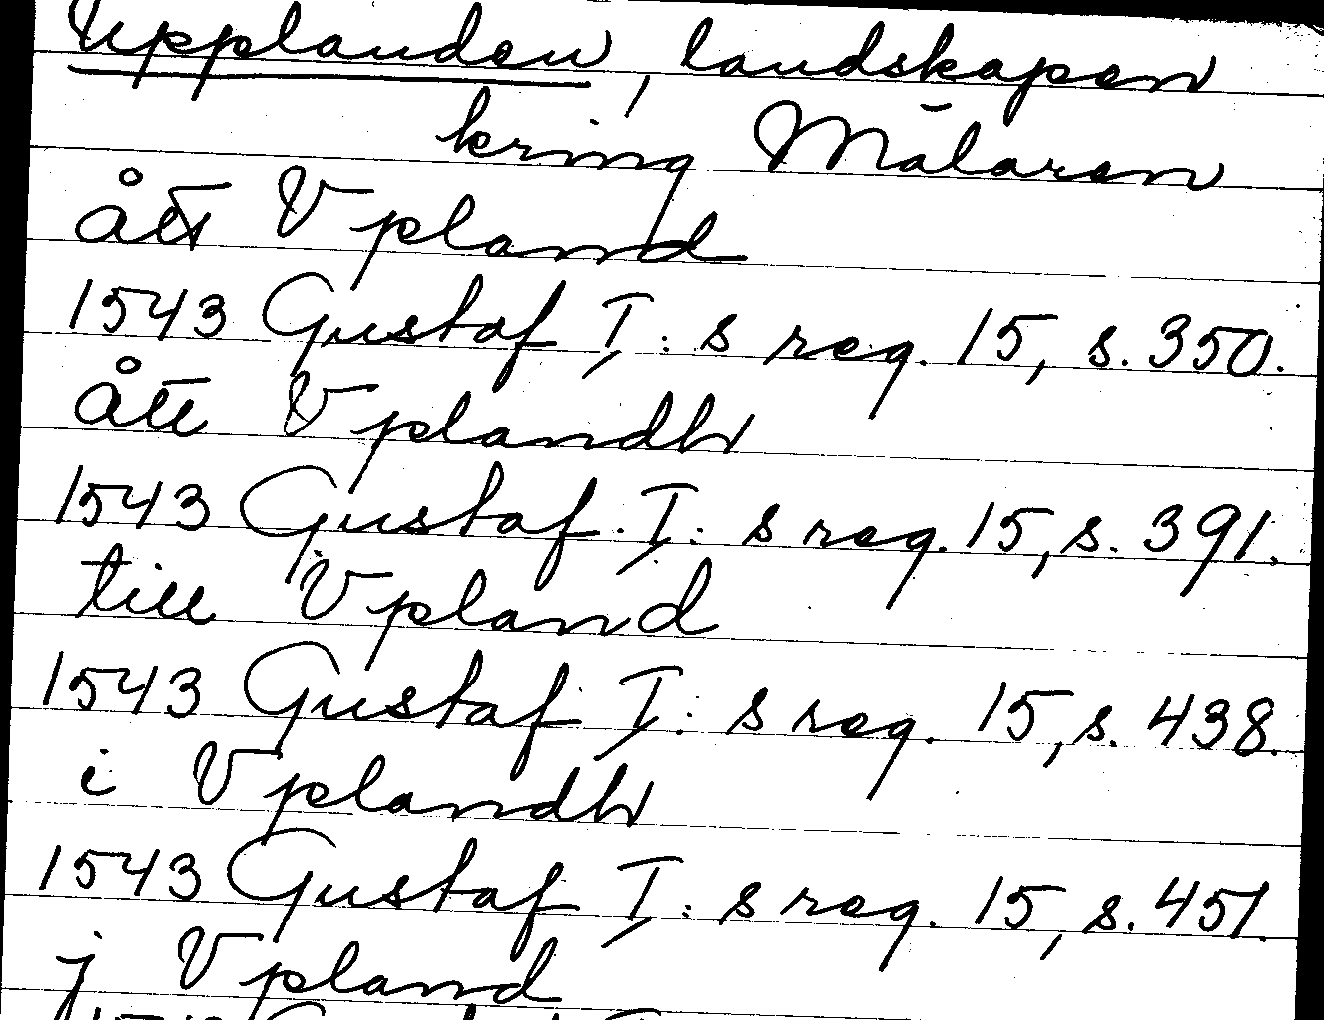 Upplanden, landskapen
kring Mälaren
ått Vpland
1543 Gustaf I:s reg. 15, s. 350.
ått Vplandh
1543 Gustaf I:s reg. 15, s. 391.
till Vpland
1543 Gustaf I:s reg. 15, s. 438.
i Vplandh
1543 Gustaf I:s reg. 15, s. 451.
j Vpland